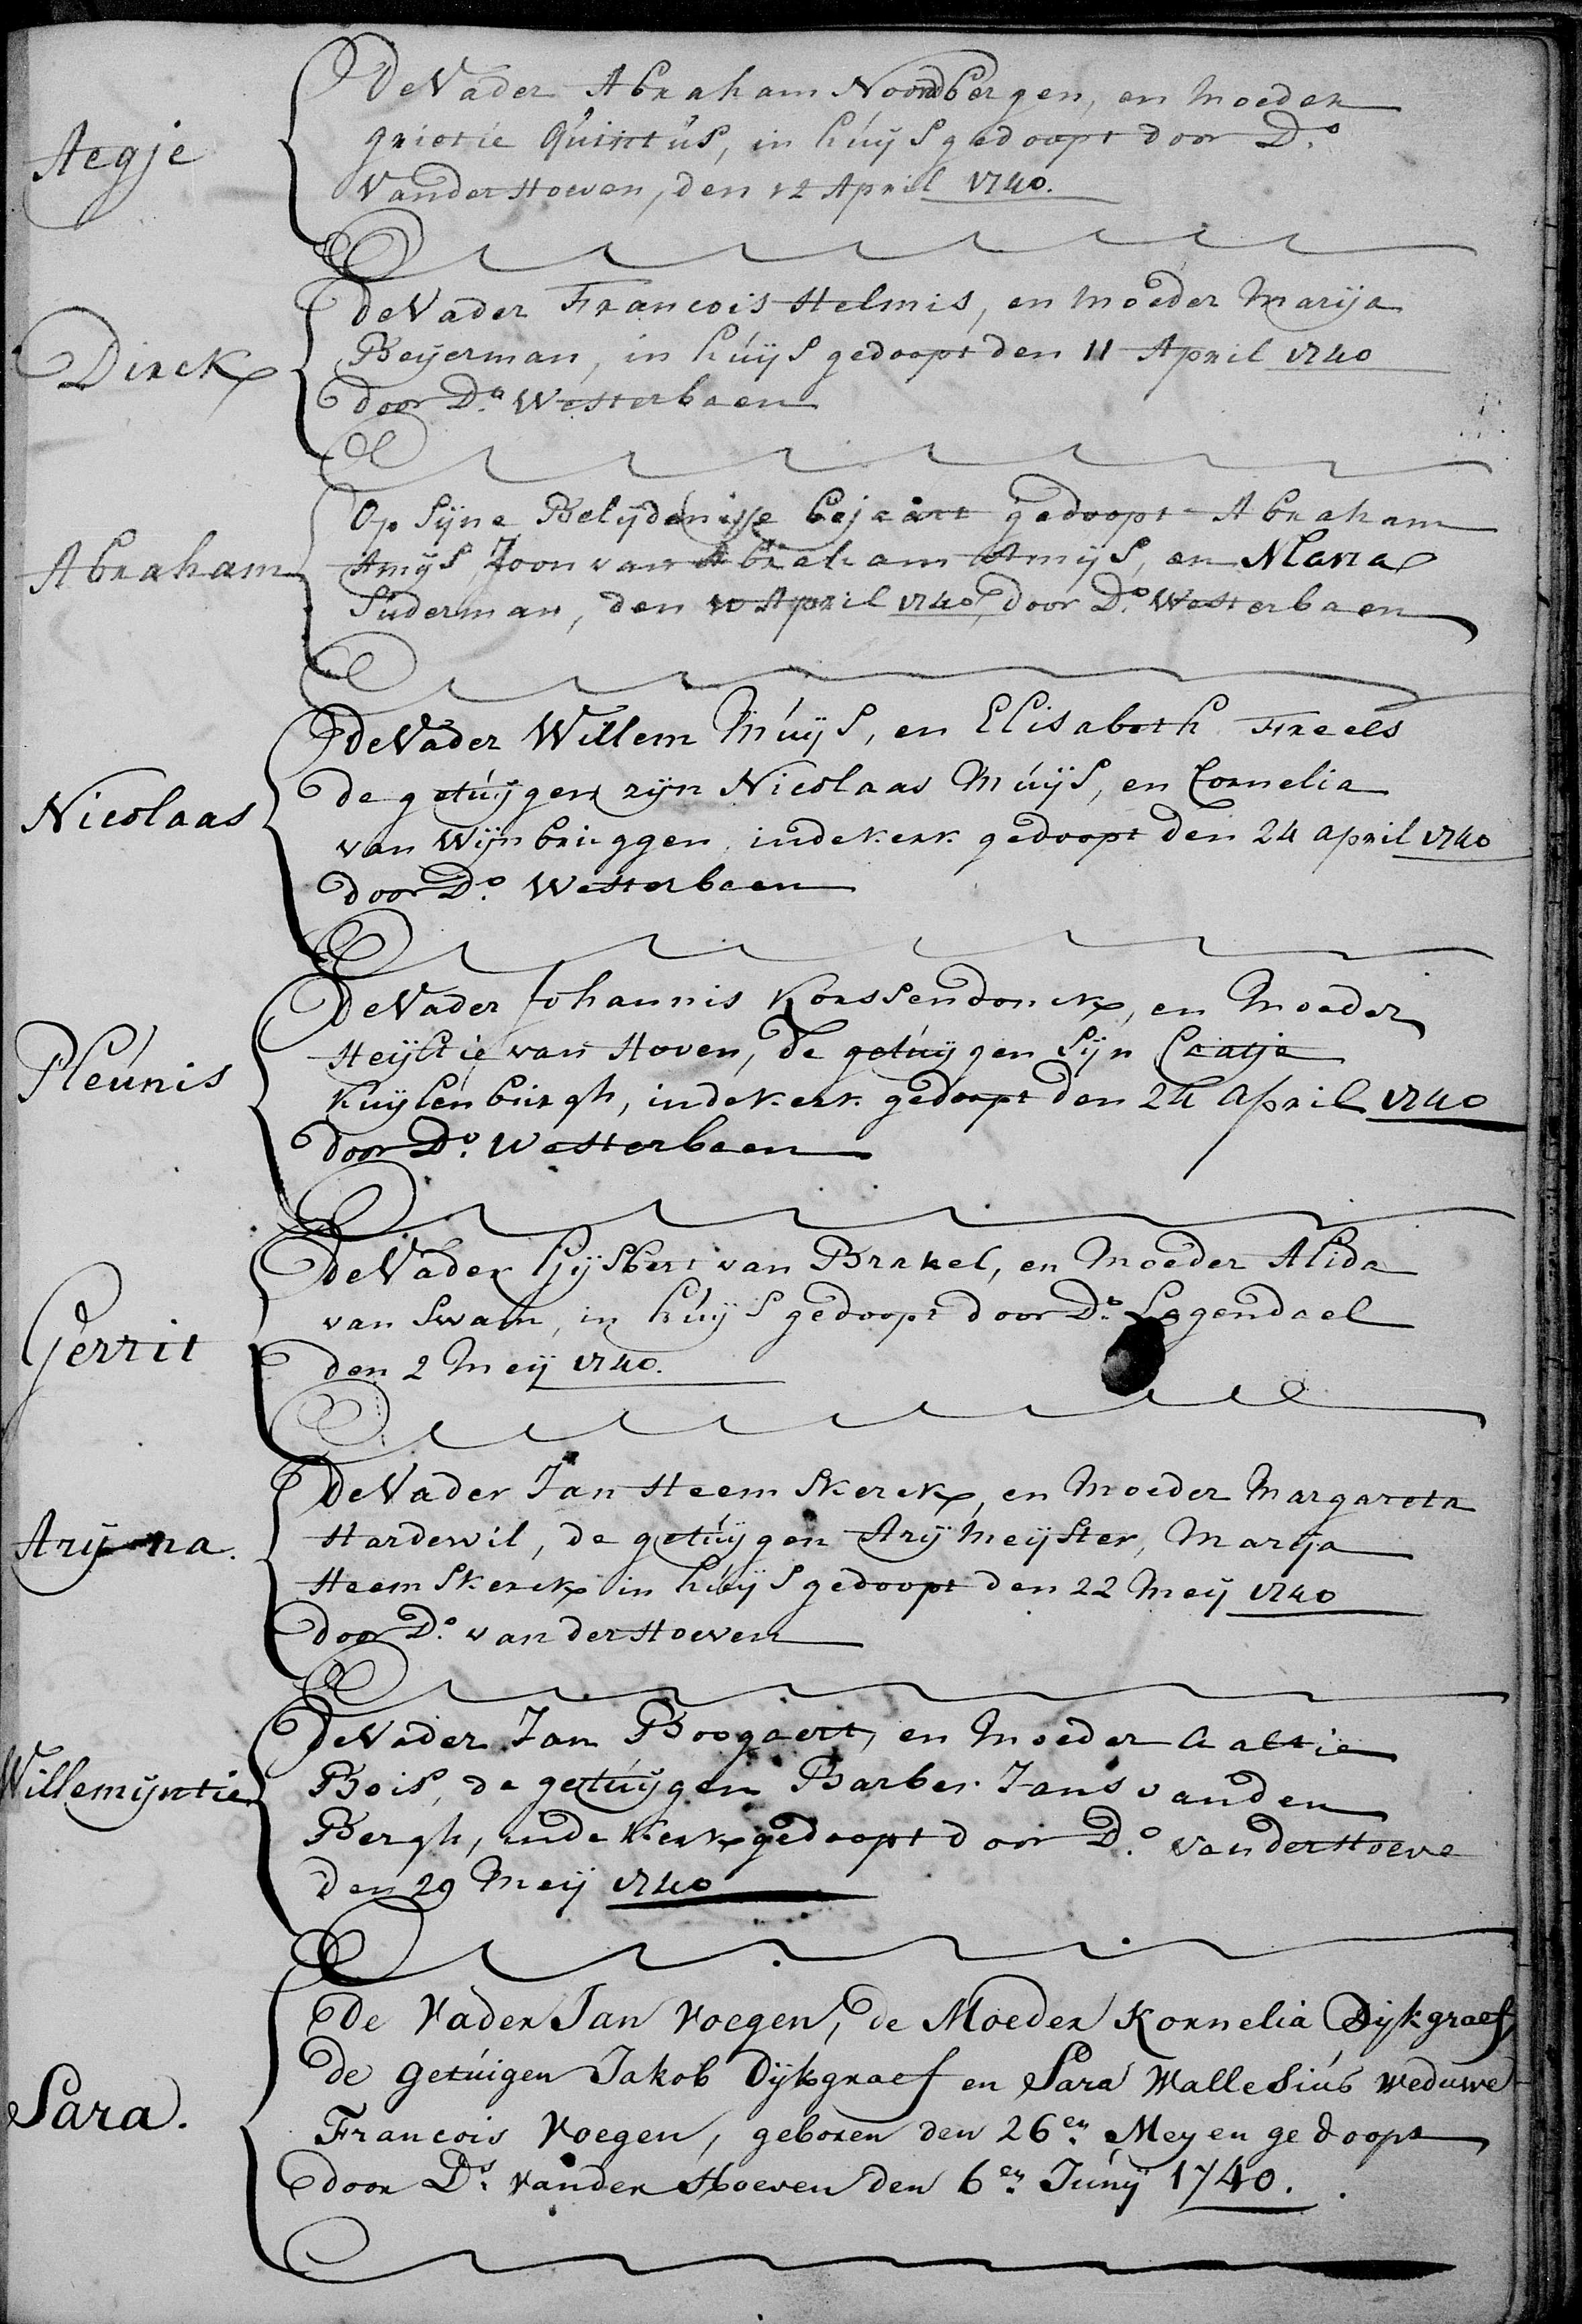 Aegje
De Vader Abraham Noordbergen, en moeder
grietie Quintus, in huijs gedoopt door D.o
Vander Hoeven, den 12 April 1740.
Dirck
de Vader Francois Helmis, en moeder Marija
Beijerman, in huijs gedoopt den 11 April 1740
door D.o Westerbaen
Abraham
Op Sijne Belijdenisse bejaart gedoopt Abraham
Amijs, Zoon van Abraham Amijs, en Maria
Suderman, den 10 April 1740, door D.o Westerbaen
Nicolaas
de Vader Willem Muijs, en Elisabeth Freels
de getuijgen zijn Nicolaas Muijs, en Cornelia
van Wijnbruggen, inde kerk gedoopt den 24 april 1740
door D.o Westerbaen
Pleunis
De Vader Johannis Korssendonck, en Moeder
Heijltie van Hoven, de getuijgen Sijn Caatje
Kuijlenburgh, inde kerk gedoopt den 24 april 1740
door D.o Westerbaen
Gerrit
De Vader Gijsbert van Brakel, en Moeder Alida
van Swaln, in huijs gedoopt door D.s Lagendael
den 2 Meij 1740.
Arij-na.
De Vader Jan Heemskerck, en Moeder Margareta
Hardewil, de getuijgen Arij Meijster, Marija
Heemskerck in huijs gedoopt den 22 Meij 1740
door D.o van der Hoeven
Willemijntie
De Vader Jan Boogaert, en Moeder Aaltie
Bois, de getuijgen Barber Jans vanden
Bergh, inde kerk gedoopt door D.o vander Hoeve
den 29 Meij 1740
Sara.
De Vader Jan Voegen, de Moeder Kornelia Dijkgraef,
de Getuigen Jakob Dijkgraef en Sara Wallesius weduwe
Francois Voegen, geboren den 26en Mey en gedoopt
door D.s vander Hoeven den 6en Junij 1740.